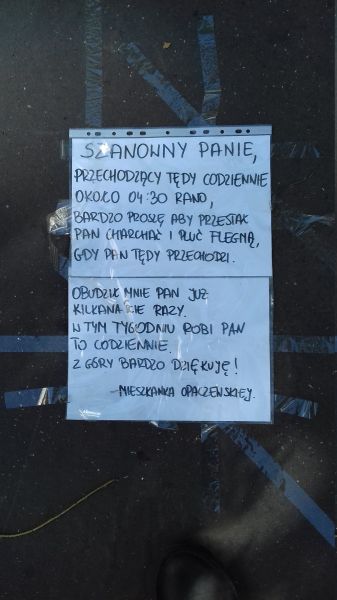 SZANOWNY PANIE,
PRZECHODZĄCY TĘDY CODZIENNIE
OKOŁO 04:30 RANO,
BARDZO PROSZĘ ABY PRZESTAŁ
PAN CHARCHAĆ I PLUĆ FLEGMĄ,
GDY PAN TĘDY PRZECHODZI.
OBUDZIŁ MNIE PAN JUŻ
KILKANAŚCIE RAZY.
W TYM TYGODNIU ROBI PAN
TO CODZIENNIE.
Z GÓRY BARDZO DZIĘKUJĘ!
-MIESZKANKA OPACZEWSKIEJ.